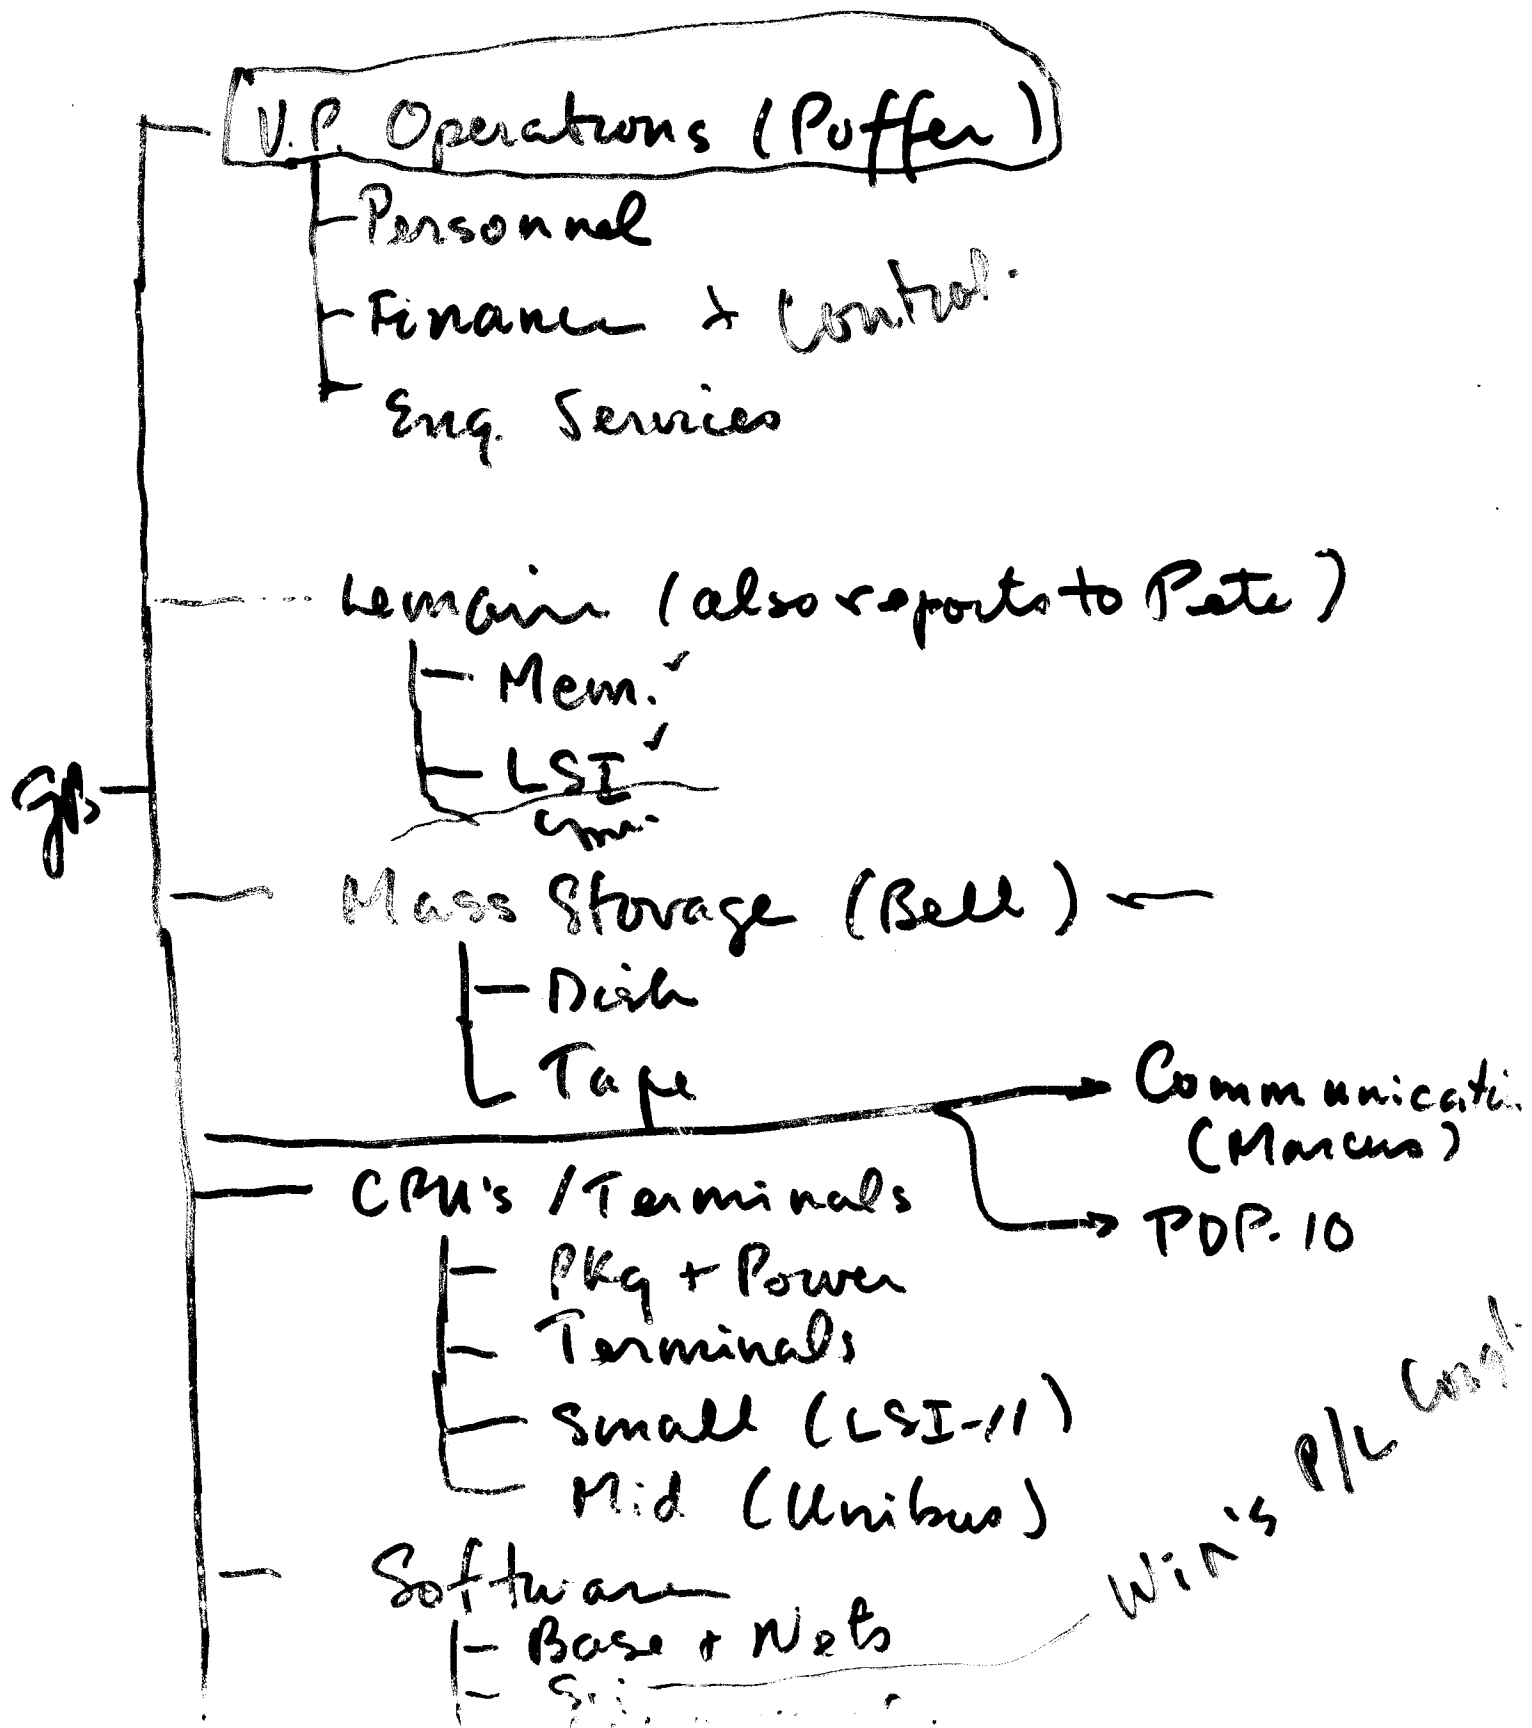 V.P. Operations (Puffer)
Personnel
Finance + Control.
Eng. Services
Lemaire (also reports to Pete)
Mem. ✓
LSI ✓
gB
Mass Storage (Bell)
Disk
Tape
Communicati
(Marcus)
CPU's / Terminals
PDP-10
Pkg + Power
Terminals
Small (LSI-11)
Mid (Unibus)
Software
Win's P/L
Base + Nets